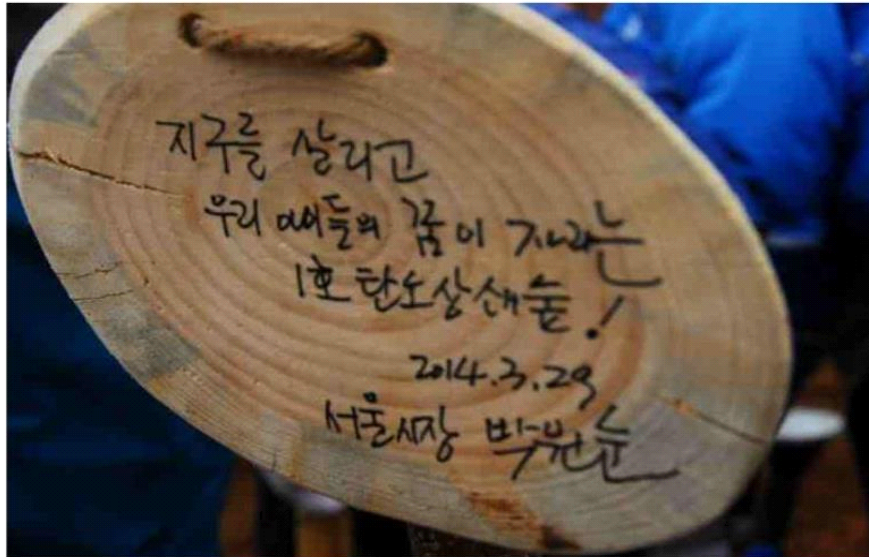 지구를 살리고
우리 아이들의 꿈이 자라는
1호 탄소상쇄숲!
2014.3.29
서울시장 박원순